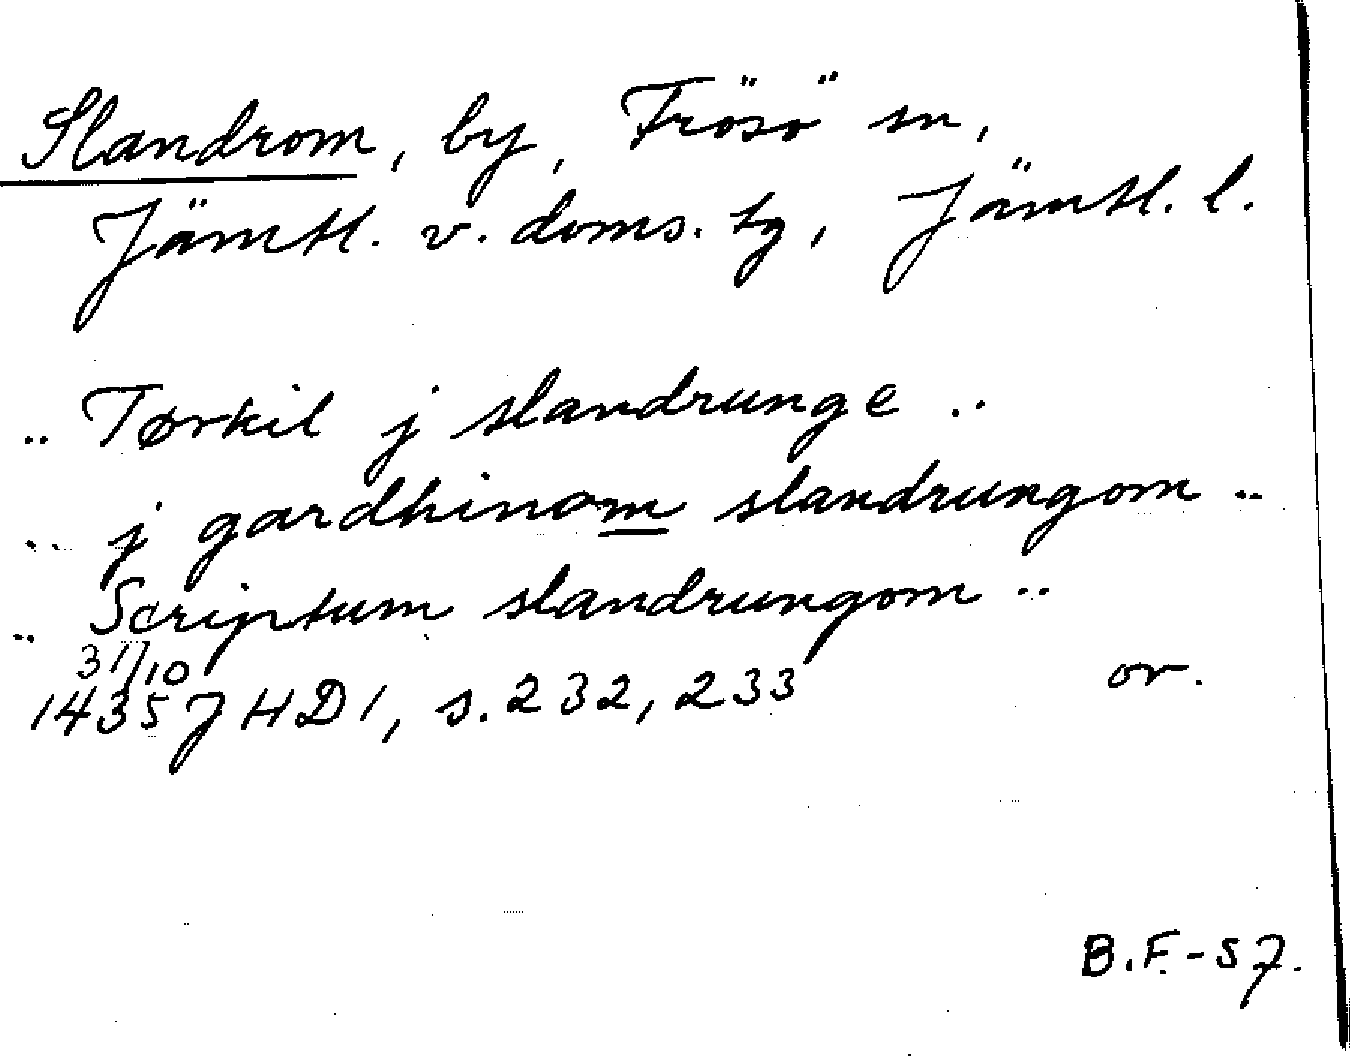 Slandrom, by, Frösö sn,
Jämtl. v. doms. tg, Jämtl. l.
.. Tørkil j slandrunge ..
.. j gardhinom slandrungom ..
.. Scriptum slandrungom ..
31/10
1435 JHD 1, s. 232, 233 or.
B.F.-57.